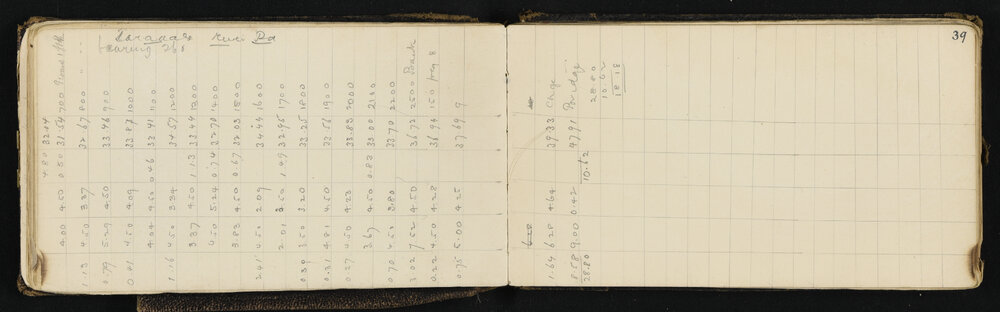 River Rd
bearing 261
4.80 32.04
4.00 4.50 0.50 31.54 700
1.13 4.50 3.37 32.67 800 " "
0.79 5.29 4.50 33.46 900
0.41 4.50 4.09 33.87 1000
4.04 4.50 0.46 33.41 1100
1.16 4.50 3.34 34.57 1200
3.37 4.50 1.13 33.44 1300
4.50 5.24 0.74 32.70 1400
3.83 4.50 0.67 32.03 1500
2.41 4.50 2.09 34.44 1600
2.01 3.50 1.49 32.95 1700
0.30 3.50 3.20 33.25 1800
0.31 4.81 4.50 33.56 1900
0.27 4.50 4.23 33.83 2000
3.67 4.50 0.83 33.00 2100
0.70 4.50 3.80 33.70 2200
3.02 7.52 4.50 36.72 2500 Back
0.22 4.50 4.28 36.94 150 peg 8
0.75 5.00 4.25 37.69 9
39
6.28
1.64 6.28 4.64 39.33 Chge
8.58 9.00 0.42 47.91 Bridge
28.80 10.62
28.80
10.62
18.18